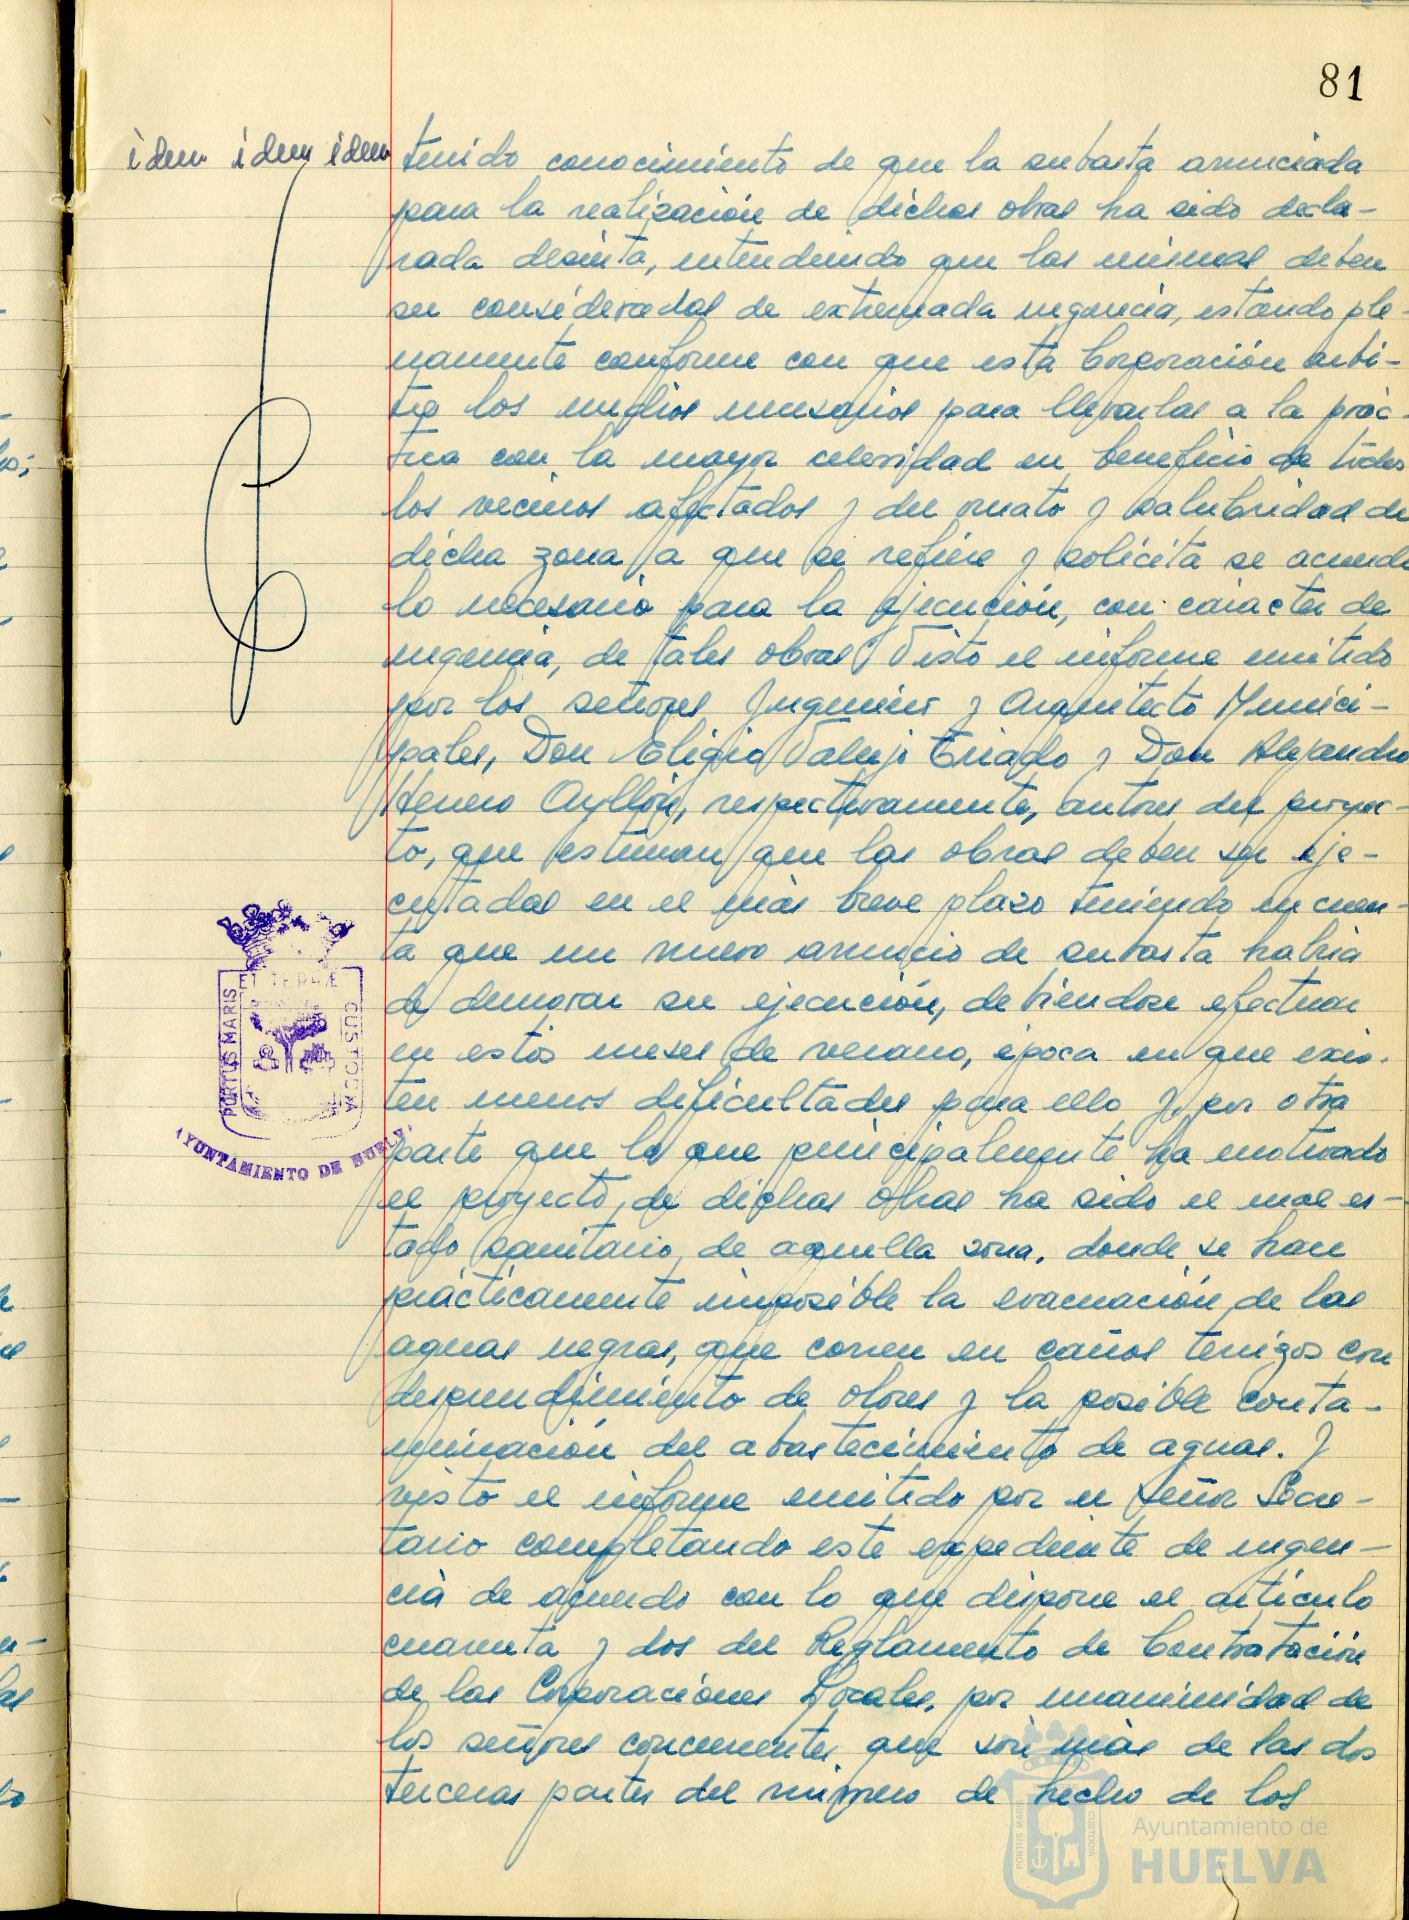 81
idem idem idem
tenido conocimiento de que la subasta anunciada
para la realización de dichas obras ha sido decla-
rada desierta, entendiendo que las mismas deben
ser consideradas de extremada urgencia, estando ple-
namente conforme con que esta Corporación arbi-
tre los medios necesarios para llevarlas a la prác-
tica con la mayor celeridad en beneficio de todos
los vecinos afectados y del ornato y salubridad de
dicha zona a que se refiere y solicita se acuerde
lo necesario para la ejecución, con caracter de
urgencia, de tales obras; Visto el informe emitido
por los señores Ingeniero y Arquitecto Munici-
pales, Don Eligio Vallejo Triado y Don Alejandro
Herrero Ayllón, respectivamente, autores del proyec-
to, que estiman que las obras deben ser eje-
cutadas en el más breve plazo teniendo en cuen-
ta que un nuevo anuncio de subasta habria
de demorar su ejecución, debiendose efectuar
en estos meses de verano, época en que exis-
ten menos dificultades para ello y, por otra
parte que lo que principalmente ha motivado
el proyecto de dichas obras ha sido el mal es-
tado sanitario de aquella zona, donde se hace
prácticamente imposible la evacuación de las
aguas negras, que corren en caños terrizos con
desprendimiento de olores y la posible conta-
minación del abastecimiento de aguas. Y
visto el informe emitido por el señor Secre-
tario completando este expediente de urgen-
cia de acuerdo con lo que dispone el artículo
cuarenta y dos del Reglamento de Contratación
de las Corporaciones Locales, por unanimidad de
los señores concurrentes que son más de las dos
terceras partes del número de hecho de los
PORTUS MARIS
ET TERRÆ
CUSTODIA
AYUNTAMIENTO DE HUELVA
PORTUS MARIS
CUSTODIA
Ayuntamiento de
HUELVA